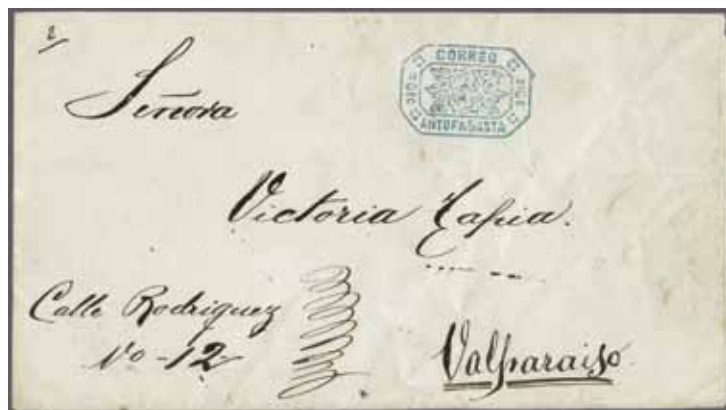 Señora
CORREO
ANTOFAGASTA
Victoria Tapia.
Calle Rodriguez
No - 12
Valparaiso